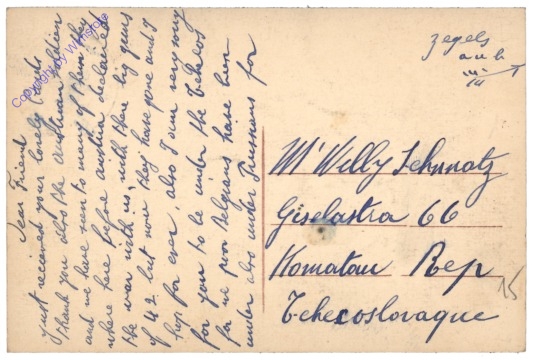 Dear Friend
just received your lovely cards
thank you also the austrian soldiers
and we have seen to many of them they
where here before austria declared
the war with us, with their big guns
of 42 but now they have gone and I
hop for ever. also I am very sorry
for you to be under the Tchecos
for we poor Belgians have been
under also under Prussians for
Copyright by Wertstore
zegels
a u b
Mr Willy Schmatz
Giselastra 66
Komatau Rep
Tchecoslovaque
15